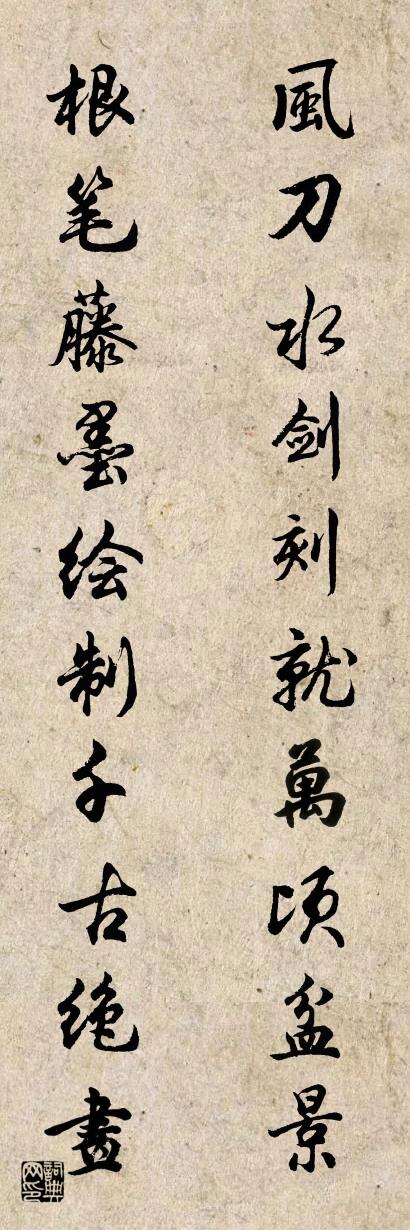 風刀水剑刻就萬顷盆景
根笔藤墨绘制千古绝畫
詞典网印